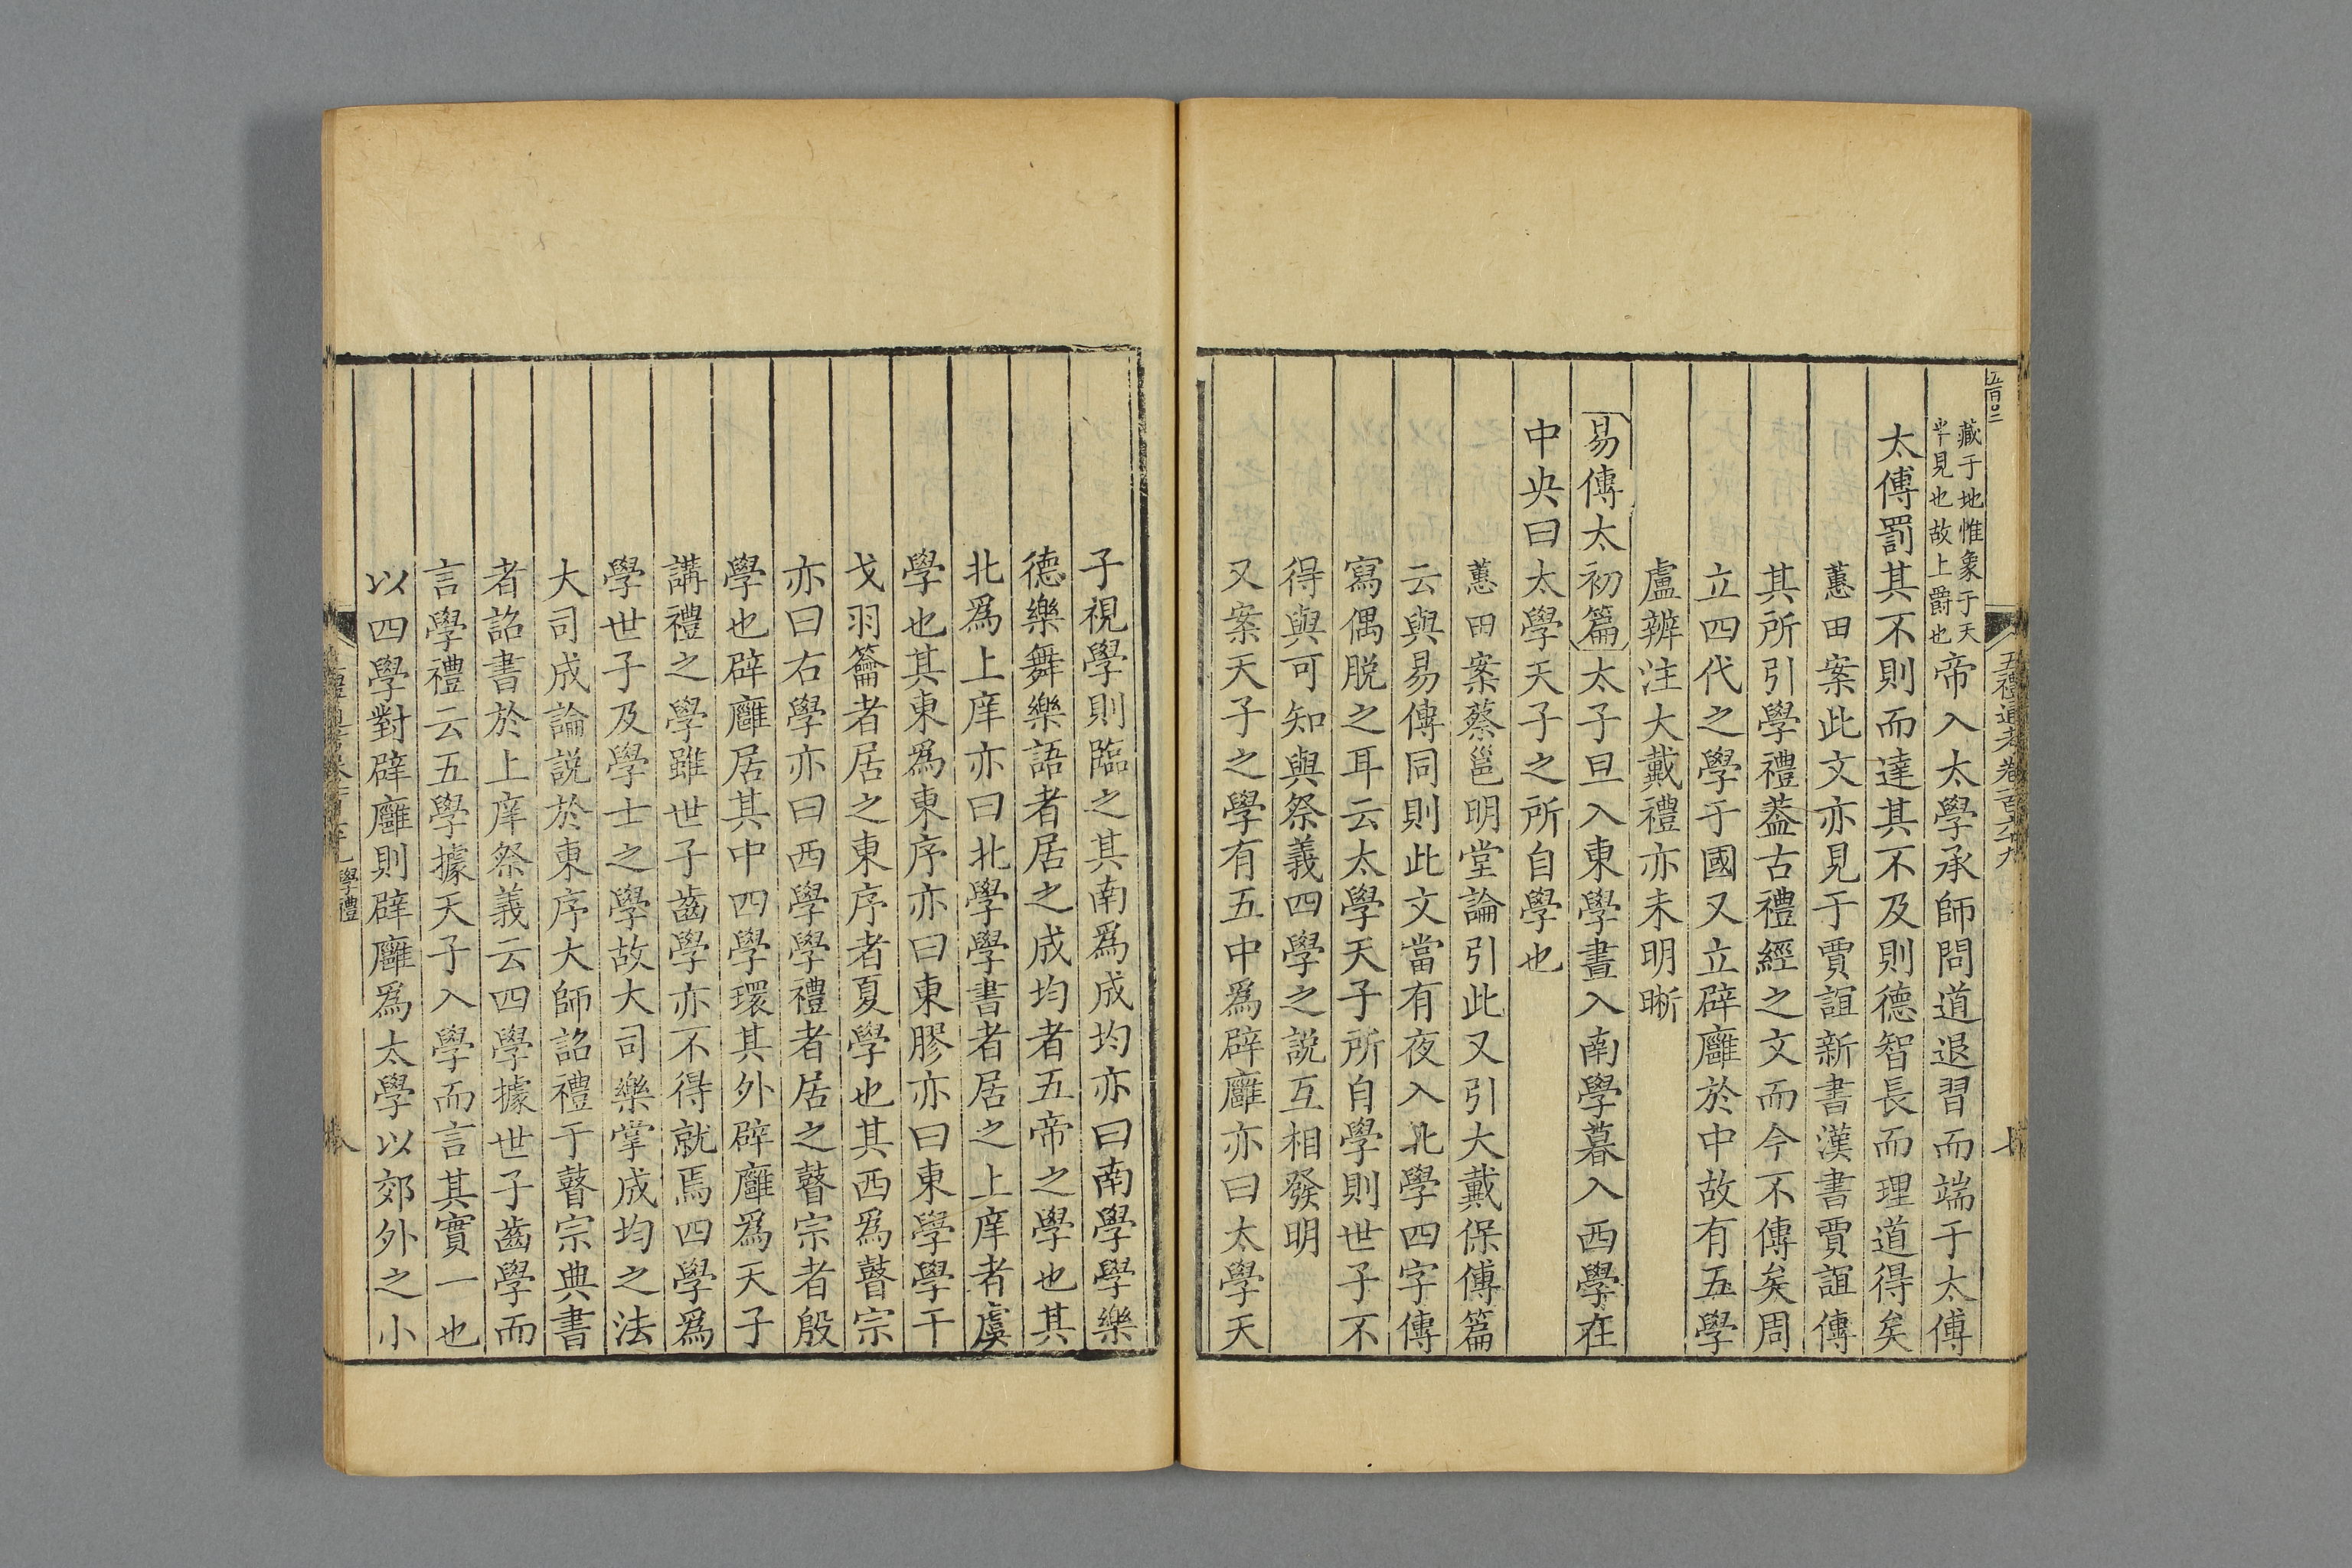 五百〇二
五禮通考卷一百六十九
七
藏于地惟象于天
半見也故上爵也
帝入太學承師問道退習而端于太傅
太傅罰其不則而達其不及則德智長而理道得矣
蕙田案此文亦見于賈誼新書漢書賈誼傳
其所引學禮葢古禮經之文而今不傳矣周
立四代之學于國又立辟廱於中故有五學
盧辨注大戴禮亦未明晰
易傳太初篇太子旦入東學晝入南學暮入西學在
中央曰太學天子之所自學也
蕙田案蔡邕明堂論引此又引大戴保傅篇
云與易傳同則此文當有夜入北學四字傳
寫偶脱之耳云太學天子所自學則世子不
得與可知與祭義四學之説互相發明
又案天子之學有五中為辟廱亦曰太學天
子視學則臨之其南為成均亦曰南學學樂
德樂舞樂語者居之成均者五帝之學也其
北為上庠亦曰北學學書者居之上庠者虞
學也其東為東序亦曰東膠亦曰東學學干
戈羽籥者居之東序者夏學也其西為瞽宗
亦曰右學亦曰西學學禮者居之瞽宗者殷
學也辟廱居其中四學環其外辟廱為天子
講禮之學雖世子齒學亦不得就焉四學為
學世子及學士之學故大司樂掌成均之法
大司成論説於東序大師詔禮于瞽宗典書
者詔書於上庠祭義云四學據世子齒學而
言學禮云五學據天子入學而言其實一也
以四學對辟廱則辟廱為太學以郊外之小
學禮
八